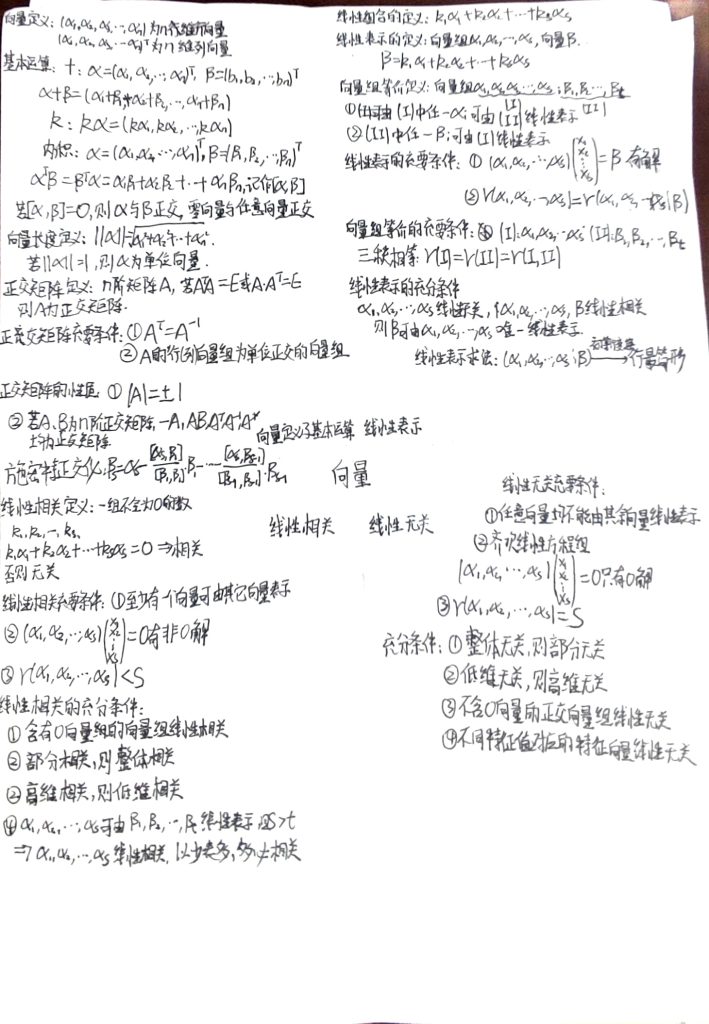 向量定义: (α₁,α₂,α₃,…,αₙ)为n行维行向量
(α₁,α₂,α₃,…αₙ)ᵀ为n维列向量
基本运算: +: α=(α₁,α₂,…,αₙ)ᵀ, β=(b₁,b₂,…,bₙ)ᵀ
α+β=(α₁+β₁,α₂+β₂,…,αₙ+βₙ)
k: kα=(kα₁,kα₂,…,kαₙ)
内积: α=(α₁,α₂,…,αₙ)ᵀ, β=(β₁,β₂,…,βₙ)ᵀ
αᵀβ=βᵀα=α₁β₁+α₂β₂+…+αₙβₙ,记作[α,β]
若[α,β]=0,则α与β正交,零向量与任意向量正交
向量长度定义: ||α||=√α₁²+α₂²+…+αₙ²
若||α||=1,则α为单位向量.
正交矩阵定义: n阶矩阵A, 若AᵀA=E或A·Aᵀ=E
则A为正交矩阵.
正交矩阵充要条件: ①Aᵀ=A⁻¹
②A的行(列)向量组为单位正交的向量组
正交矩阵的性质 ① |A|=±1
② 若A、B为n阶正交矩阵,-A,AB,Aᵀ,A⁻¹,A*
均为正交矩阵
施密特正交化: βs=αs-[αs,β₁]/[β₁,β₁]·β₁-…-[αs,βs₋₁]/[βs₋₁,βs₋₁]·βs₋₁
线性相关定义: 一组不全为0的数
k₁,k₂,…,ks,
k₁α₁+k₂α₂+…+ksαs=0⇒相关
否则无关
线性相关充要条件: ①至少有一个向量可由其它向量表示
②(α₁,α₂,…,αs)(x₁ x₂ ⋮ xs)=0有非0解
③r(α₁,α₂,…,αs)<S
线性相关的充分条件:
①含有0向量组的向量组线性相关
②部分相关,则整体相关
②高维相关,则低维相关
④α₁,α₂,…,αs可由β₁,β₂,…,βt线性表示,且s>t
⇒α₁,α₂,…,αs线性相关,以少表多,多必相关
向量定义及基本运算 线性表示
向量
线性相关 线性无关
线性组合的定义: k₁α₁+k₂α₂+…+ksαs
线性表示的定义: 向量组α₁,α₂,…,αs,向量β.
β=k₁α₁+k₂α₂+…+ksαs
向量组等价定义: 向量组α₁,α₂,…,αs;β₁,β₂,…,βt
(I) (II)
①任(I)中任一αi可由(II)线性表示
②(II)中任一βi可由(I)线性表示
线性表示的充要条件: ①(α₁,α₂,…,αs)(x₁ x₂ ⋮ xs)=β有解
②r(α₁,α₂,…,αs)=r(α₁,α₂,…αs|β)
向量组等价的充要条件: (I):α₁,α₂,…αs (II):β₁,β₂,…,βt
三秩相等: r(I)=r(II)=r(I,II)
线性表示的充分条件
α₁,α₂,…,αs线性无关, α₁,α₂,…,αs,β线性相关
则β可由α₁,α₂,…,αs唯一线性表示.
线性表示求法: (α₁,α₂,…,αs|β)初等行变换→行最简形
线性无关充要条件:
①任意向量均不能由其余向量线性表示
②齐次线性方程组
(α₁,α₂,…,αs)(x₁ x₂ ⋮ xs)=0只有0解
③r(α₁,α₂,…,αs)=S
充分条件: ①整体无关,则部分无关
②低维无关,则高维无关
③不含0向量的正交向量组线性无关
④不同特征值对应的特征向量线性无关